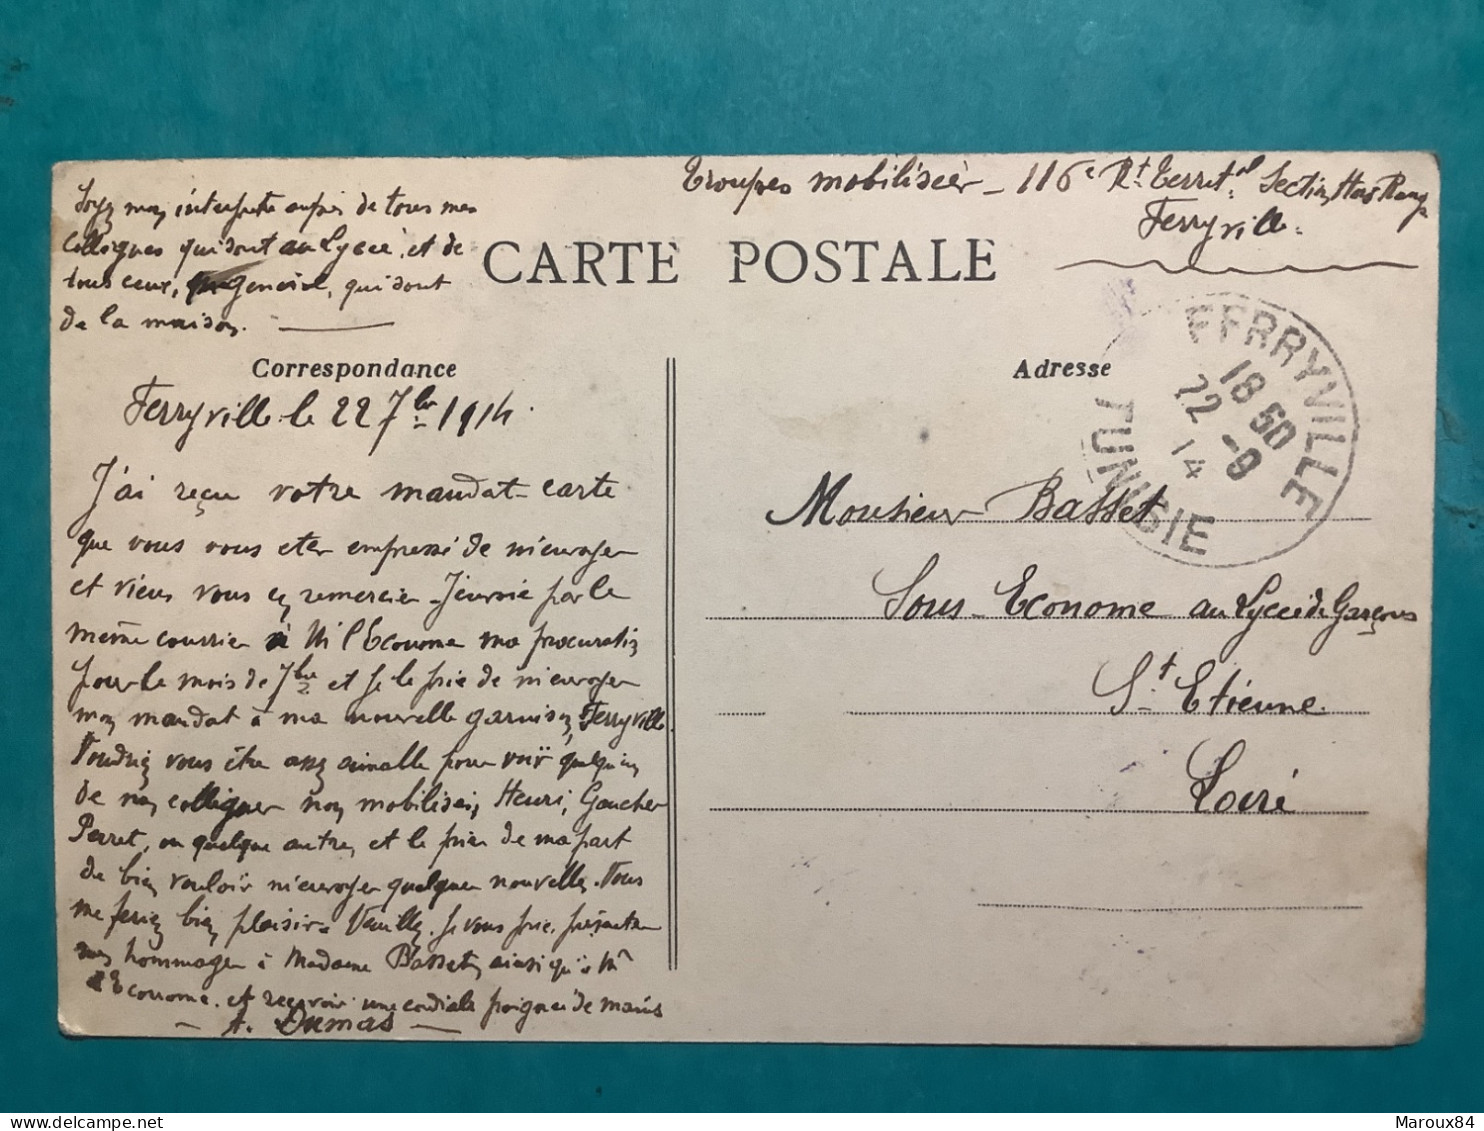 Troupes mobilisées - 116e Rt Territal Section Hors Rang
Ferryville.
Soyez mon interprète auprès de tous mes
collègues qui sont au Lycée, et de
tous ceux, en général, qui sont
de la maison.
CARTE POSTALE
Correspondance
Adresse
FERRYVILLE
18 50
22 -9
14
TUNISIE
Ferryville le 22 7bre 1914.
J'ai reçu votre mandat-carte
que vous vous etes empressé de m'envoyer
et viens vous en remercier. J'envoie par le
même courrier à M l'Econome ma procuration
pour le mois de 7bre et je le prie de m'envoyer
mon mandat à ma nouvelle garnison, Ferryville.
Voudriez vous être assez aimable pour voir quelqu'un
de nos collègues non mobilisés, Henri, Goucher
Perret, ou quelque autre, et le prier de ma part
de bien vouloir m'envoyer quelques nouvelles. Vous
me feriez bien plaisir. Veuillez, je vous prie, présenter
mes hommages à Madame Basset, ainsi qu'à Mr
l'Econome. et recevoir une cordiale poignée de mains
A. Dumas
Monsieur Basset
Sous-Econome au Lycée de Garçons
St Etienne.
Loire
Maroux84